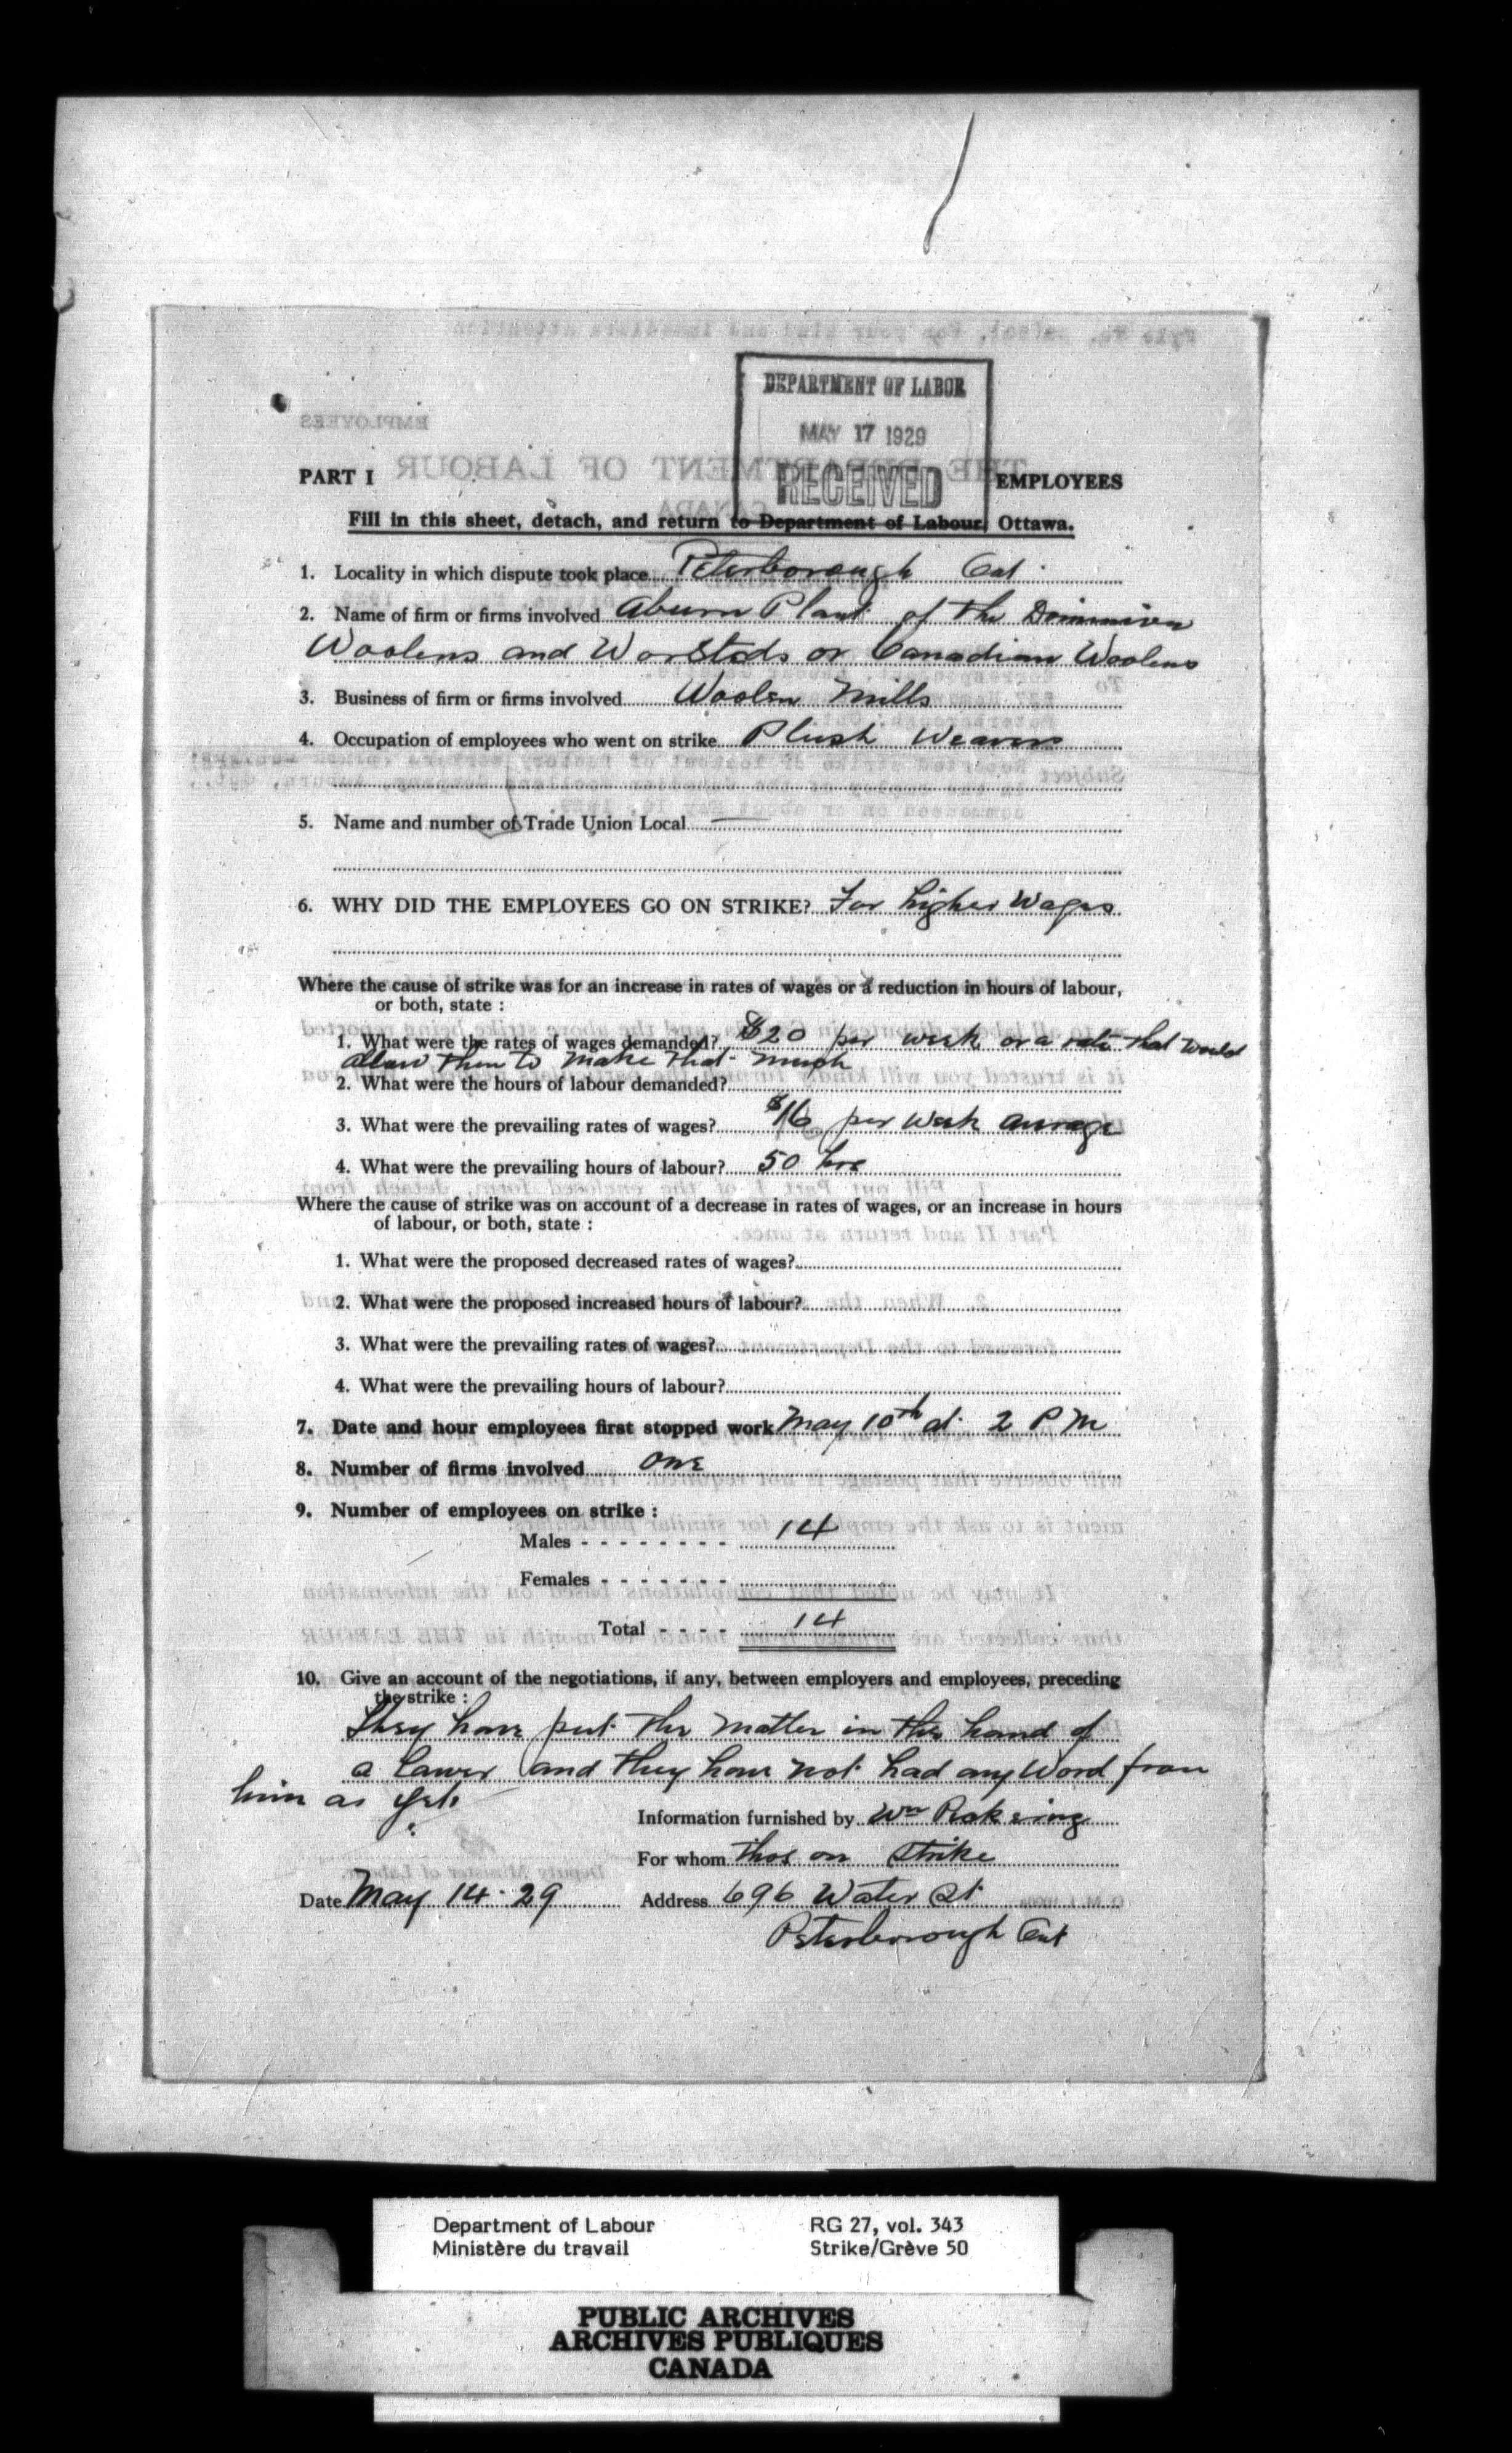 DEPARTMENT OF LABOR
MAY 17 1929
RECEIVED
PART I EMPLOYEES
Fill in this sheet, detach, and return to Department of Labour, Ottawa.
1. Locality in which dispute took place Peterborough Ont
2. Name of firm or firms involved Aburn Plant of the Dominion
Woolens and Worsteds or Canadian Woolens
3. Business of firm or firms involved Woolen Mills
4. Occupation of employees who went on strike Plush Weavers
5. Name and number of Trade Union Local —
6. WHY DID THE EMPLOYEES GO ON STRIKE? For higher Wages
Where the cause of strike was for an increase in rates of wages or a reduction in hours of labour,
or both, state :
1. What were the rates of wages demanded? $20 per week or a rate that would
allow them to make that much
2. What were the hours of labour demanded?
3. What were the prevailing rates of wages? $16 per week average
4. What were the prevailing hours of labour? 50 hrs
Where the cause of strike was on account of a decrease in rates of wages, or an increase in hours
of labour, or both, state :
1. What were the proposed decreased rates of wages?
2. What were the proposed increased hours of labour?
3. What were the prevailing rates of wages?
4. What were the prevailing hours of labour?
7. Date and hour employees first stopped work May 10th at 2 P M
8. Number of firms involved one
9. Number of employees on strike :
Males - - - - - - - - 14
Females - - - - - - -
Total - - - - 14
10. Give an account of the negotiations, if any, between employers and employees, preceding
the strike :
They have put the matter in the hand of
a lawer and they have not had any word from
him as yet.
Information furnished by Wm
For whom thos on strike
Date May 14 - 29 Address 696 Water St
Peterborough Ont
Department of Labour RG 27, vol. 343
Ministère du travail Strike/Grève 50
PUBLIC ARCHIVES
ARCHIVES PUBLIQUES
CANADA